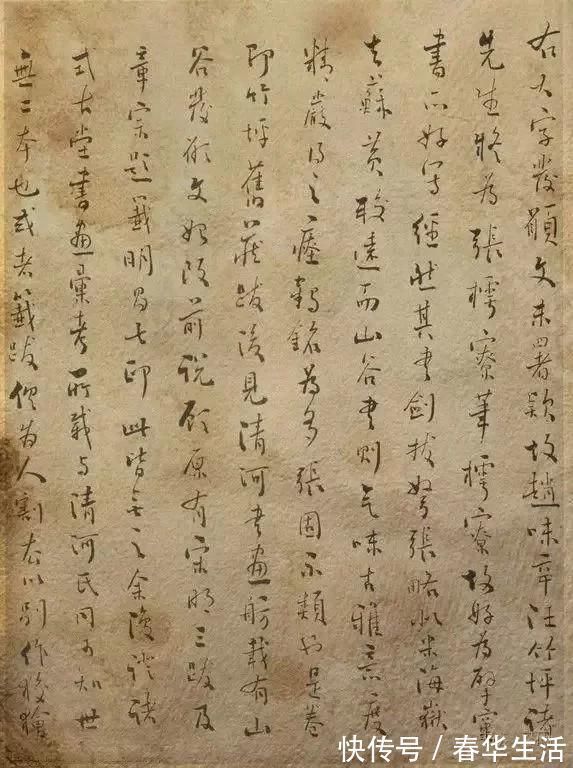 右大字發願文未署款故趙味辛汪竹坪諸
先生疑為張樗寮筆樗寮故好為擘窠
書亦好寫經然其書劍拔弩張略似米海嶽
去蘇黃較遠而山谷書則氣味古雅意度
精嚴得之瘞鶴銘為多張固不類也是卷
即竹坪舊藏跋後見清河書畫舫載有山
谷發願文始改前說顧原有宋明三跋及
章宗題籤明昌七印此皆無之余復證諸
式古堂書畫彙考所載與清河氏同可知世
無二本也或者籤跋俱為人割去以別作狡獪
快传号 / 春华生活